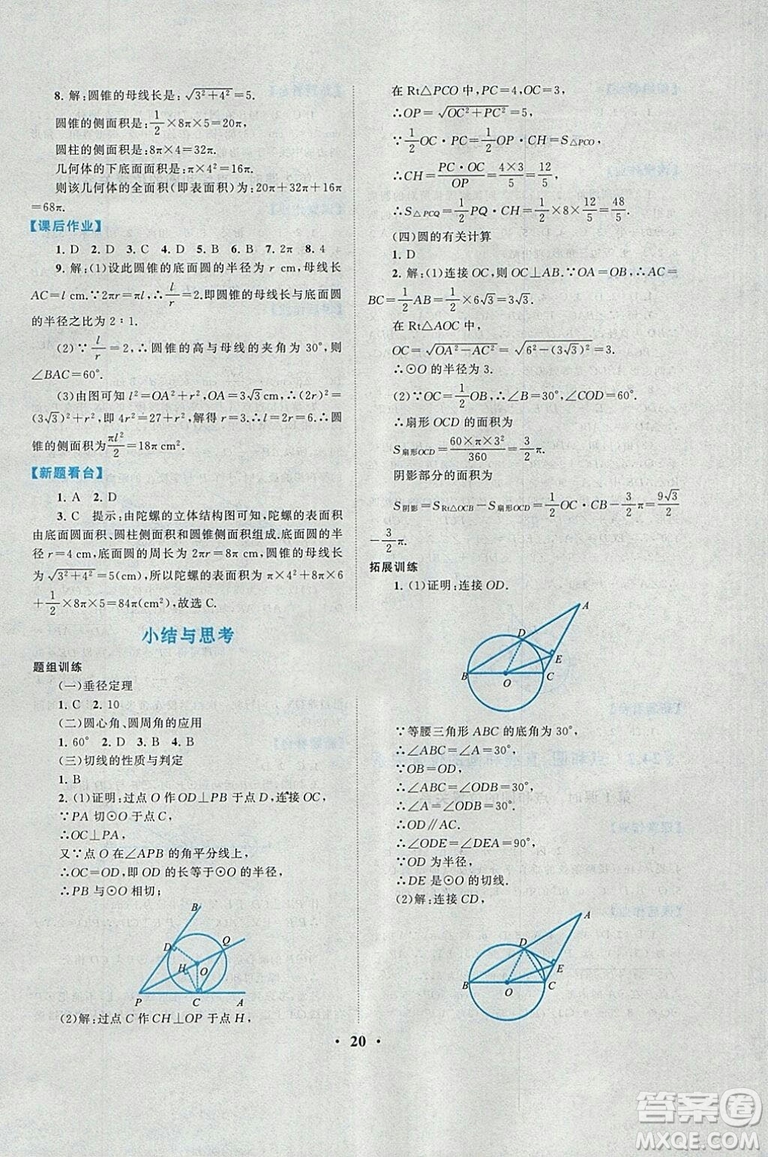 8. 解:圆锥的母线长是:√(3²+4²)=5.
圆锥的侧面积是:1/2×8π×5=20π,
圆柱的侧面积是:8π×4=32π.
几何体的下底面面积是:π×4²=16π.
则该几何体的全面积(即表面积)是:20π+32π+16π
=68π.
【课后作业】
1. D 2. D 3. C 4. B 5. B 6. B 7. 2π 8. 4
9. 解:(1)设此圆锥的底面圆的半径为 r cm,母线长
AC=l cm.∵2πr=πl,∴l/r=2,即圆锥的母线长与底面圆
的半径之比为 2∶1.
(2)∵l/r=2,∴圆锥的高与母线的夹角为 30°,则
∠BAC=60°.
(3)由图可知 l²=OA²+r²,OA=3√3 cm,∴(2r)²=
(3√3)²+r²,即 4r²=27+r²,解得 r=3.∴l=2r=6.∴圆
锥的侧面积为πl²/2=18π cm².
【新题看台】
1. A 2. D
3. C 提示:由陀螺的立体结构图可知,陀螺的表面积
由底面圆面积、圆柱侧面积和圆锥侧面积组成.底面圆的半
径 r=4 cm,底面圆的周长为 2πr=8π cm,圆锥的母线长为
√(3²+4²)=5(cm),所以陀螺的表面积为 π×4²+8π×6
+1/2×8π×5=84π(cm²),故选 C.
小结与思考
题组训练
(一)垂径定理
1. C 2. 10
(二)圆心角、圆周角的应用
1. 60° 2. D 3. B 4. B
(三)切线的性质与判定
1. B
2. (1)证明:过点 O 作 OD⊥PB 于点 D,连接 OC.
∵PA 切⊙O 于点 C,
∴OC⊥PA.
又∵点 O 在∠APB 的角平分线上,
∴OC=OD,即 OD 的长等于⊙O 的半径,
∴PB 与⊙O 相切.
B
D
Q
H
O
P
C
A
(2)解:过点 C 作 CH⊥OP 于点 H,
在 Rt△PCO 中,PC=4,OC=3,
∴OP=√(OC²+PC²)=5.
∵1/2OC·PC=1/2OP·CH=S△PCO,
∴CH=PC·OC/OP=4×3/5=12/5,
∴S△PCQ=1/2PQ·CH=1/2×8×12/5=48/5.
(四)圆的有关计算
1. D
2. 解:(1)连接 OC,则 OC⊥AB.∵OA=OB,∴AC=
BC=1/2AB=1/2×6√3=3√3.
在 Rt△AOC 中,
OC=√(OA²−AC²)=√(6²−(3√3)²)=3.
∴⊙O 的半径为 3.
(2)∵OC=1/2OB,∴∠B=30°,∠COD=60°.
∴扇形 OCD 的面积为
S扇形OCD=60×π×3²/360=3/2π.
阴影部分的面积为
S阴影=SRt△OCB−S扇形OCD=1/2OC·CB−3/2π=9√3/2
−3/2π.
拓展训练
1. (1)证明:连接 OD.
A
D
E
B
O
C
∵等腰三角形 ABC 的底角为 30°,
∴∠ABC=∠A=30°.
∵OB=OD,
∴∠ABC=∠ODB=30°.
∴∠A=∠ODB=30°.
∴OD∥AC.
∴∠ODE=∠DEA=90°.
∵OD 为半径,
∴DE 是⊙O 的切线.
(2)解:连接 CD,
A
D
E
B
O
C
· 20 ·
答案圈
MXQE.COM